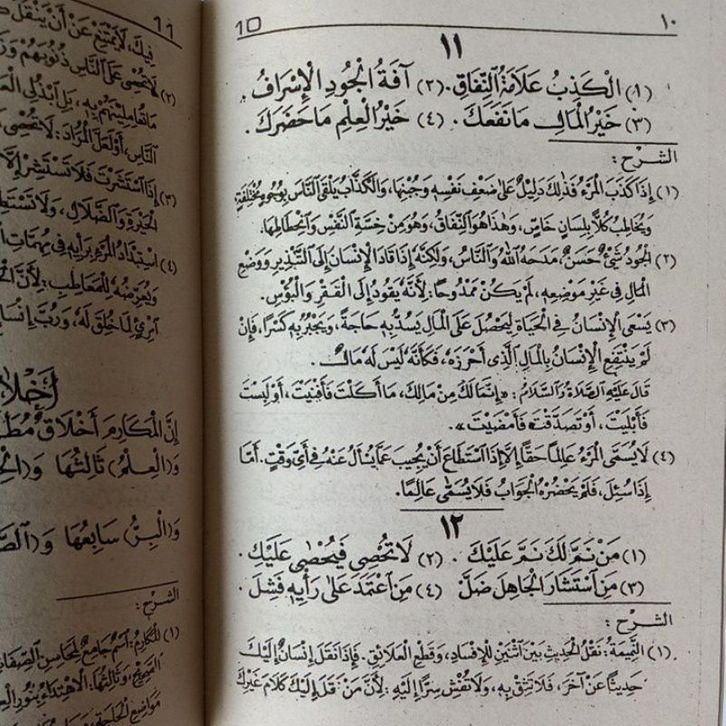 10
١٠
١١
(١) الْكَذِبُ عَلَامَةُ النِّفَاقِ. (٢) آفَةُ الْجُودِ الْإِسْرَافُ.
(٣) خَيْرُ الْمَالِ مَا نَفَعَكَ. (٤) خَيْرُ الْعِلْمِ مَا حَضَرَكَ.
الشرح:
(١) إِذَا كَذَبَ الْمَرْءُ فَذٰلِكَ دَلِيلٌ عَلَى ضَعْفِ نَفْسِهِ وَجُبْنِهَا، وَالْكَذَّابُ يَلْقَى النَّاسَ بِوُجُوهٍ مُخْتَلِفَةٍ
وَيُخَاطِبُ كُلًّا بِلِسَانٍ خَاصٍّ، وَهٰذَا هُوَ النِّفَاقُ، وَهُوَ مِنْ خِسَّةِ النَّفْسِ وَانْحِطَاطِهَا.
(٢) الْجُودُ شَيْءٌ حَسَنٌ، مَدَحَهُ اللّٰهُ وَالنَّاسُ، وَلٰكِنَّهُ إِذَا قَادَ الْإِنْسَانَ إِلَى التَّبْذِيرِ وَوَضْعِ
الْمَالِ فِي غَيْرِ مَوْضِعِهِ، لَمْ يَكُنْ مَمْدُوحًا: لِأَنَّهُ يَقُودُ إِلَى الْفَقْرِ وَالْبُؤْسِ.
(٣) يَسْعَى الْإِنْسَانُ فِي الْحَيَاةِ لِيَحْصُلَ عَلَى الْمَالِ يَسُدُّ بِهِ حَاجَةً، وَيَجْبُرُ بِهِ كَسْرًا، فَإِنْ
لَمْ يَنْتَفِعِ الْإِنْسَانُ بِالْمَالِ الَّذِي أَحْرَزَهُ، فَكَأَنَّهُ لَيْسَ لَهُ مَالٌ.
قَالَ عَلَيْهِ الصَّلَاةُ وَالسَّلَامُ: «إِنَّمَا لَكَ مِنْ مَالِكَ، مَا أَكَلْتَ فَأَفْنَيْتَ، أَوْ لَبِسْتَ
فَأَبْلَيْتَ، أَوْ تَصَدَّقْتَ فَأَمْضَيْتَ».
(٤) لَا يُسَمَّى الْمَرْءُ عَالِمًا حَقًّا إِلَّا إِذَا اسْتَطَاعَ أَنْ يُجِيبَ عَمَّا يُسْأَلُ عَنْهُ فِي أَيِّ وَقْتٍ. أَمَّا
إِذَا سُئِلَ، فَلَمْ يَحْضُرْهُ الْجَوَابُ فَلَا يُسَمَّى عَالِمًا.
١٢
(١) مَنْ نَمَّ لَكَ نَمَّ عَلَيْكَ. (٢) لَا تُحْصِي فَيُحْصَى عَلَيْكِ.
(٣) مَنِ اسْتَشَارَ الْجَاهِلَ ضَلَّ (٤) مَنِ اعْتَمَدَ عَلَى رَأْيِهِ فَشِلَ.
الشرح:
(١) النَّمِيمَةُ: نَقْلُ الْحَدِيثِ بَيْنَ اثْنَيْنِ لِلْإِفْسَادِ، وَقَطْعِ الْعَلَائِقِ. فَإِذَا نَقَلَ إِنْسَانٌ إِلَيْكَ
حَدِيثًا عَنْ آخَرَ، فَلَا تَثِقْ بِهِ، وَلَا تُفْشِ سِرًّا إِلَيْهِ: لِأَنَّ مَنْ نَقَلَ إِلَيْكَ كَلَامَ غَيْرِكَ
11
فِيكَ، لَا يَمْتَنِعُ عَنْ أَنْ يَنْقُلَ
(٢) لَا تُحْصِي عَلَى النَّاسِ ذُنُوبَهُمْ
النَّاسِ، أَوْ لَعَلَّ الْمُرَادَ:
(٣) إِذَا اسْتَشَرْتَ فَلَا تَسْتَشِرْ إِلَّا
الْخِبْرَةِ وَالضَّلَالِ،
(٤) اسْتِبْدَادُ الْمَرْءِ بِرَأْيِهِ فِي مُهِمَّاتِ
وَيُعَرِّضُهُ لِلْمَعَاطِبِ: لِأَنَّ
إِنَّ الْمَكَارِمَ أَخْلَاقٌ
وَ(الْعِلْمُ) ثَالِثُهَا
وَ(الْبِرُّ) سَابِعُهَا
الشرح:
(١) الْمَكَارِمُ: اسْمٌ جَامِعٌ لِمَحَاسِنِ
الصَّحِيحُ، وَثَالِثُهَا: الِاهْتِدَاءُ بِنُورِ